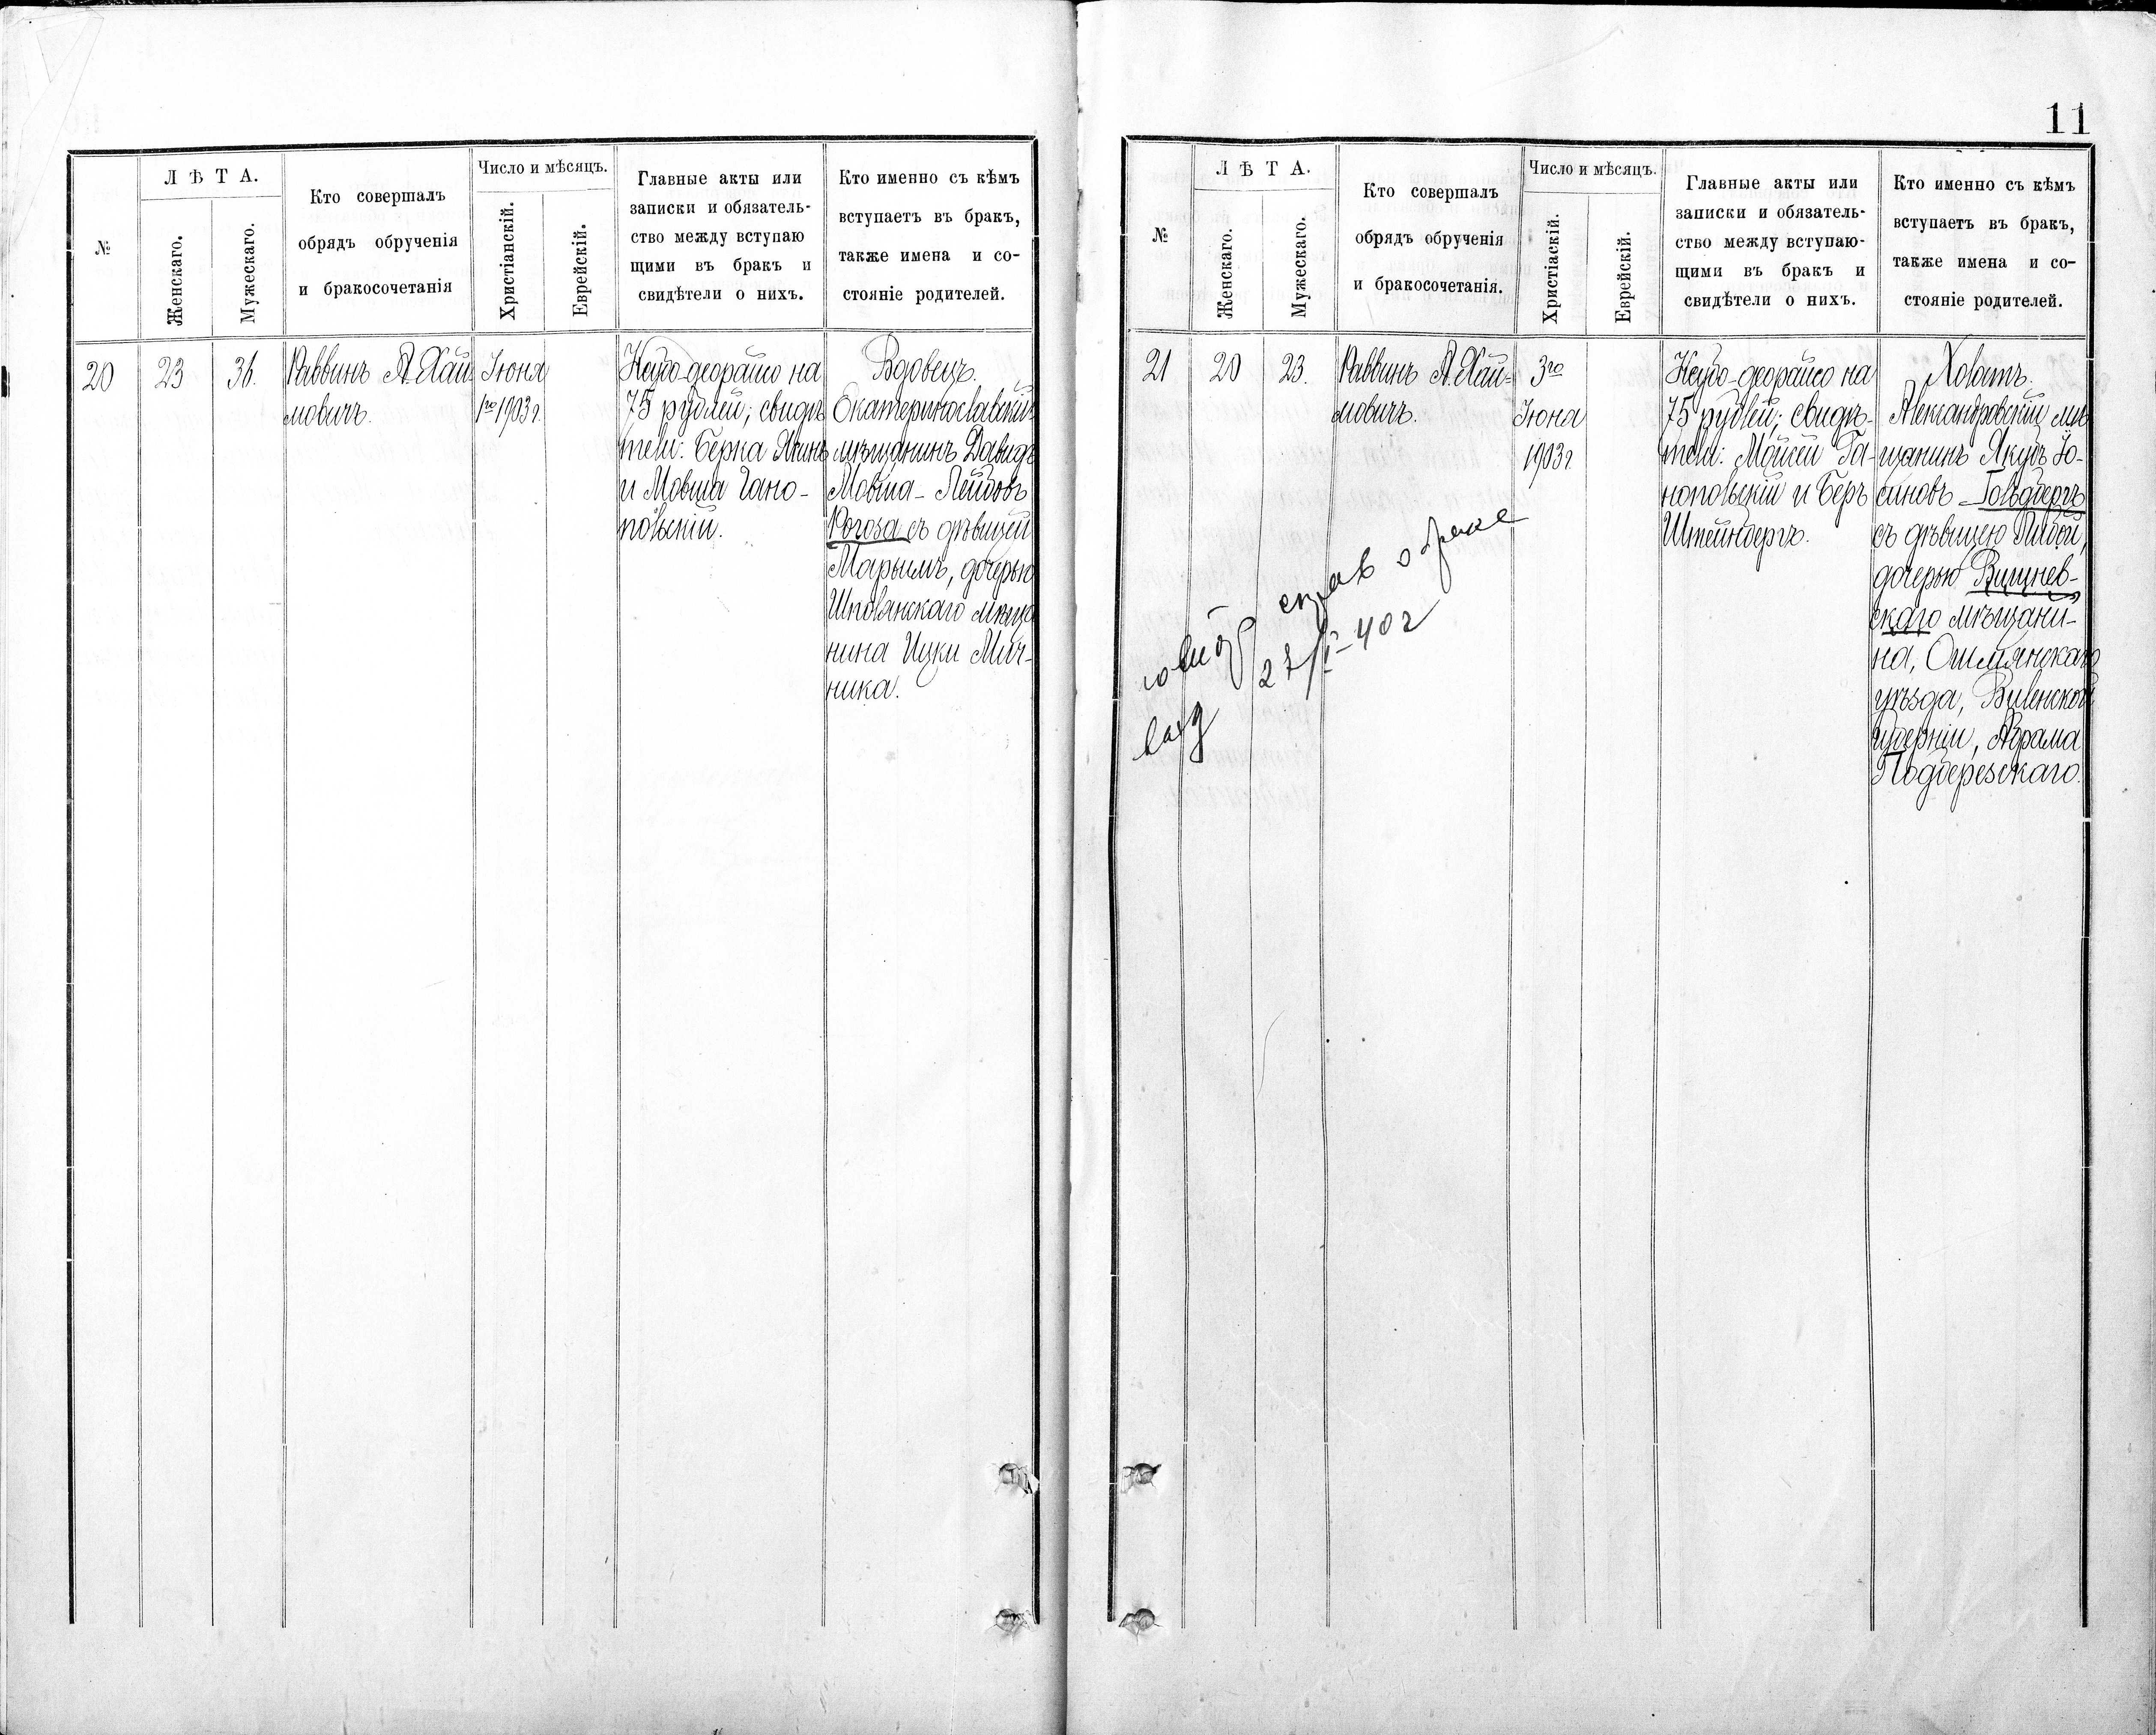 №
Л Ѣ Т А.
Женскаго.
Мужескаго.
Кто совершалъ
обрядъ обрученія
и бракосочетанія
Число и мѣсяцъ.
Христіанскій.
Еврейскій.
Главные акты или
записки и обязатель-
ство между вступаю
щими въ бракъ и
свидѣтели о нихъ.
Кто именно съ кѣмъ
вступаетъ въ бракъ,
также имена и со-
стояніе родителей.
20
23
36.
Раввинъ А. Хай-
мовичъ.
Іюня
1го 1903 г.
на
75 рублей; свидѣ
тели: Берка
и Мовша Гано-
польскій.
Вдовецъ.
Екатеринославскій
мѣщанинъ Давидъ
Мовша-Лейбовъ
Рогоза съ дѣвицей
Марьимъ, дочерью
Шполянскаго мѣща
нина Ицки Мир-
ника.
11
№
Л Ѣ Т А.
Женскаго.
Мужескаго.
Кто совершалъ
обрядъ обрученія
и бракосочетанія.
Число и мѣсяцъ.
Христіаскій.
Еврейскій.
Главные акты или
записки и обязатель-
ство между вступаю-
щими въ бракъ и
свидѣтели о нихъ.
Кто именно съ кѣмъ
вступаетъ въ бракъ,
также имена и со-
стояніе родителей.
21
20
23.
Раввинъ А. Хай-
мовичъ.
3го
Іюня
1903 г.
на
75 рублей; свидѣ-
тели: Мойсей Га-
нопольскій и Беръ
Штейнбергъ.
Холостъ.
Александровскій мѣ
щанинъ Якубъ Іо-
синовъ-Гольдбергъ
съ дѣвицею Либой,
дочерью Вишнев-
скаго мѣщани-
на, Ошмянскаго
уѣзда, Виленской
губерніи, Абрама
Подберезскаго.
справ о браке
27/I-40 г